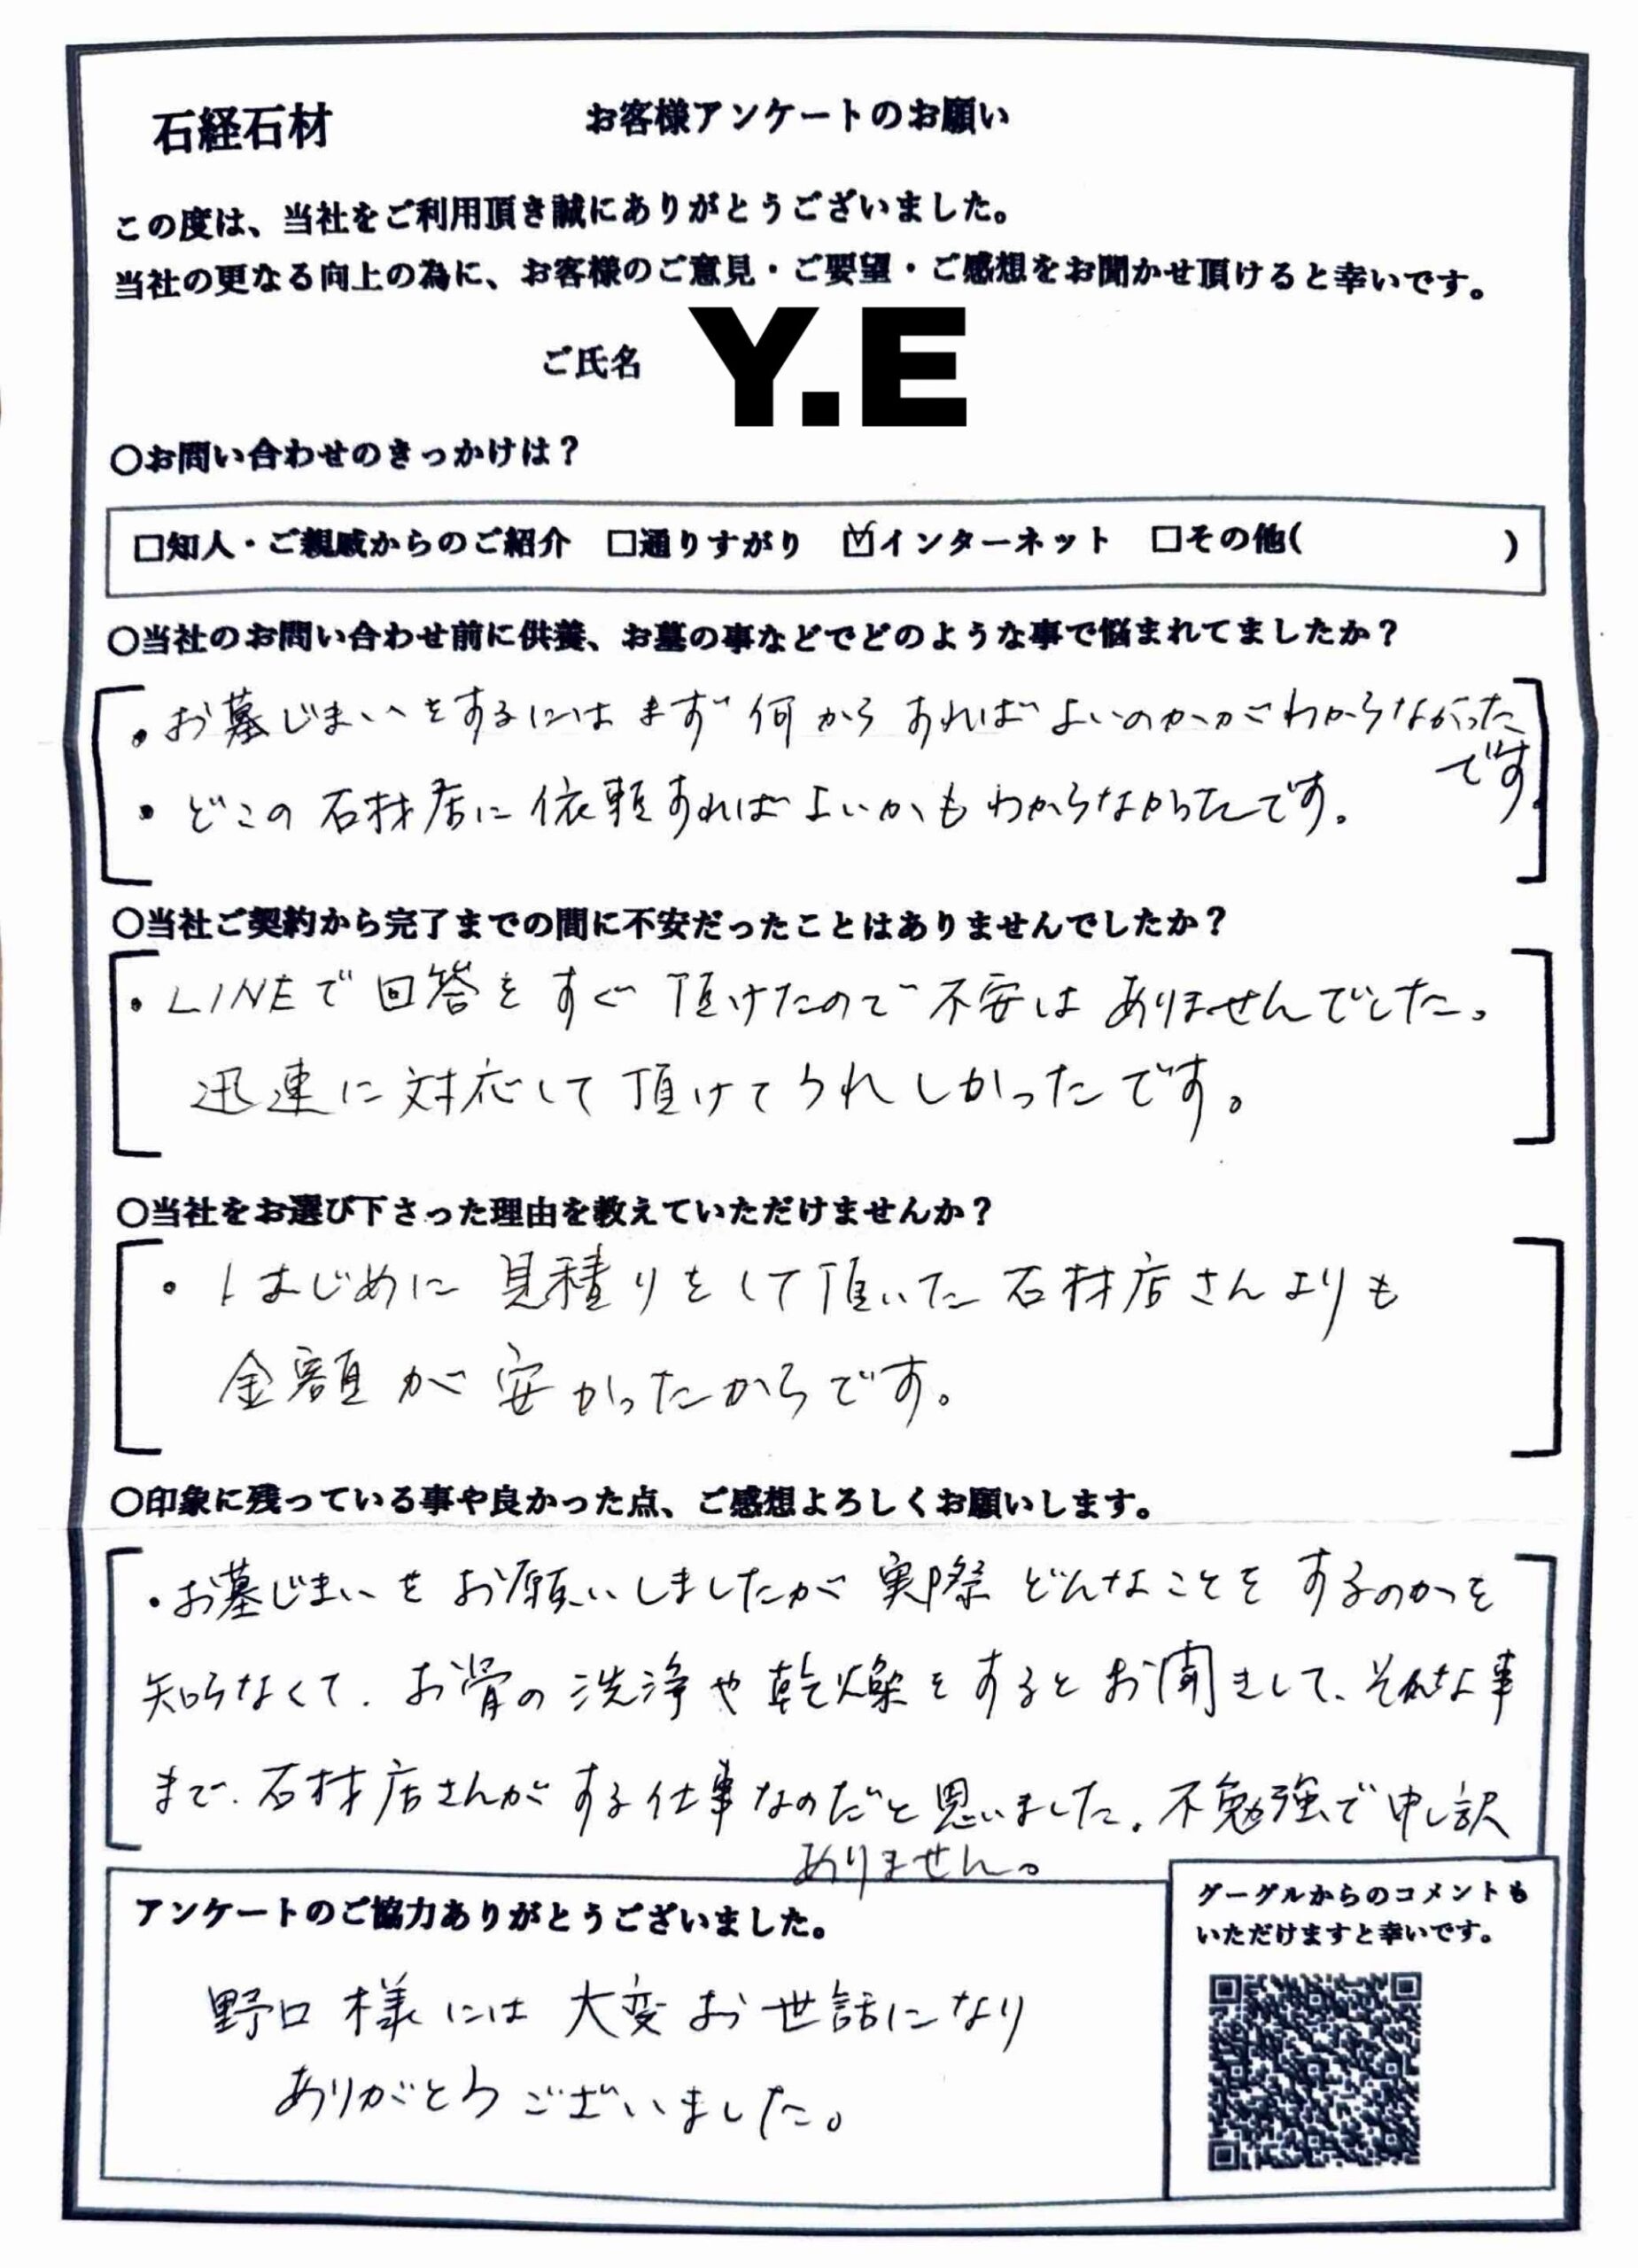 石経石材 お客様アンケートのお願い
この度は、当社をご利用頂き誠にありがとうございました。
当社の更なる向上の為に、お客様のご意見・ご要望・ご感想をお聞かせ頂けると幸いです。
ご氏名 Y.E
○お問い合わせのきっかけは？
□知人・ご親戚からのご紹介 □通りすがり ☑インターネット □その他( )
○当社のお問い合わせ前に供養、お墓の事などでどのような事で悩まれてましたか？
・お墓じまいをするにはまず何からすればよいのかがわからなかった
です。
・どこの石材店に依頼すればよいかもわからなかったです。
○当社ご契約から完了までの間に不安だったことはありませんでしたか？
・LINEで回答をすぐ頂けたので不安はありませんでした。
迅速に対応して頂けてうれしかったです。
○当社をお選び下さった理由を教えていただけませんか？
・はじめに見積りをして頂いた石材店さんよりも
金額が安かったからです。
○印象に残っている事や良かった点、ご感想よろしくお願いします。
・お墓じまいをお願いしましたが実際どんなことをするのかを
知らなくて、お骨の洗浄や乾燥をするとお聞きして、そんな事
まで、石材店さんがする仕事なのだと思いました。不勉強で申し訳
ありません。
アンケートのご協力ありがとうございました。
野口様には大変お世話になり
ありがとうございました。
グーグルからのコメントも
いただけますと幸いです。